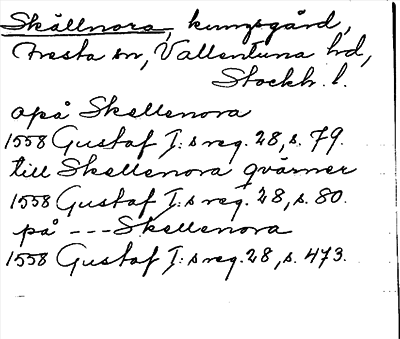 Skällnora, kungsgård,
Fresta sn, Vallentuna hd,
Stockh. l.
apå Skellenora
1558 Gustaf I:s reg. 28, s. 79.
till Skellenora qvarner
1558 Gustaf I:s reg. 28, s. 80.
på --- Skellenora
1558 Gustaf I:s reg. 28, s. 473.